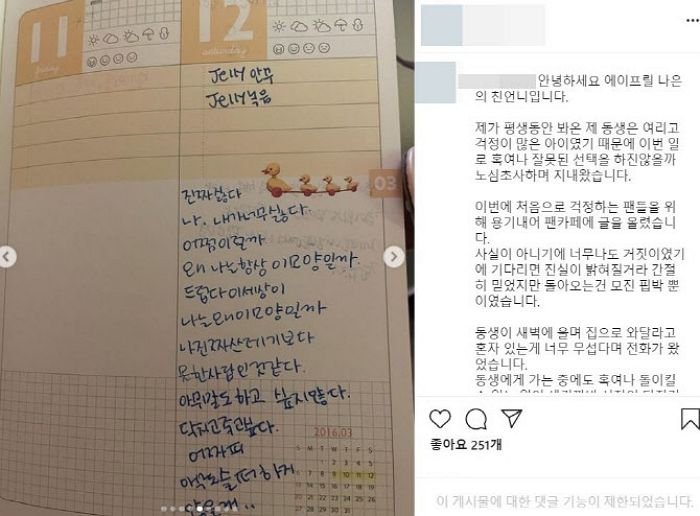 11
friday
12
saturday
Jelly 안무
Jelly 녹음
03
진짜싫다
나, 내가너무싫다
어쩜이럴까
왜 나는항상 이모양일까.
드럽다이세상이
나는왜이모양일까
나진짜쓰레기보다
못한사람인것같다.
아무말도하고 싶지않다.
닥치고죽고싶다.
어짜피
2016.03
안녕하세요 에이프릴 나은
의 친언니입니다.
제가 평생동안 봐온 제 동생은 여리고
걱정이 많은 아이였기 때문에 이번 일
로 혹여나 잘못된 선택을 하진않을까
노심초사하며 지내왔습니다.
이번에 처음으로 걱정하는 팬들을 위
해 용기내어 팬카페에 글을 올렸습니
다.
사실이 아니기에 너무나도 거짓이였기
에 기다리면 진실이 밝혀질거라 간절
히 믿었지만 돌아오는건 모진 핍박 뿐
이였습니다.
동생이 새벽에 울며 집으로 와달라고
혼자 있는게 너무 무섭다며 전화가 왔
었습니다.
동생에게 가는 중에도 혹여나 돌이킬
좋아요 251개
이 게시물에 대한 댓글 기능이 제한되었습니다.